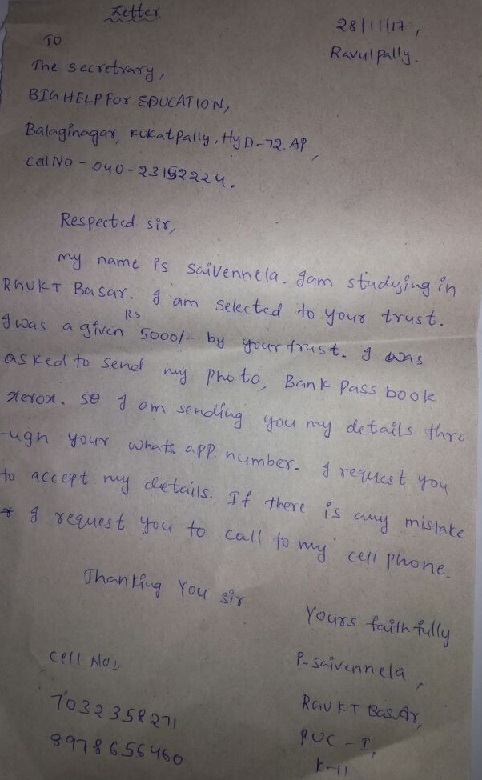 Letter
28/11/17,
Ravulpally.
To
The secretrary,
BIG HELP For EDUCATION,
Balaginagar, Kukatpally, HyD-72. AP,
Cell No - 040-23152224.
Respected sir,
my name is saivennela. I am studying in
RGUKT Basar. I am selected to your trust.
Rs
I was a given 5000/- by your trust. I was
asked to send my photo, Bank pass book
xerox. so I am sending you my details thro
-ugh your whats app number. I request you
to accept my details. If there is any mistake
I request you to call to my cell phone.
Thanking You sir
Yours faithfully
P. saivennela,
RGUKT Basar,
PUC - I,
K-11
Cell No:
7032358271
8978656460